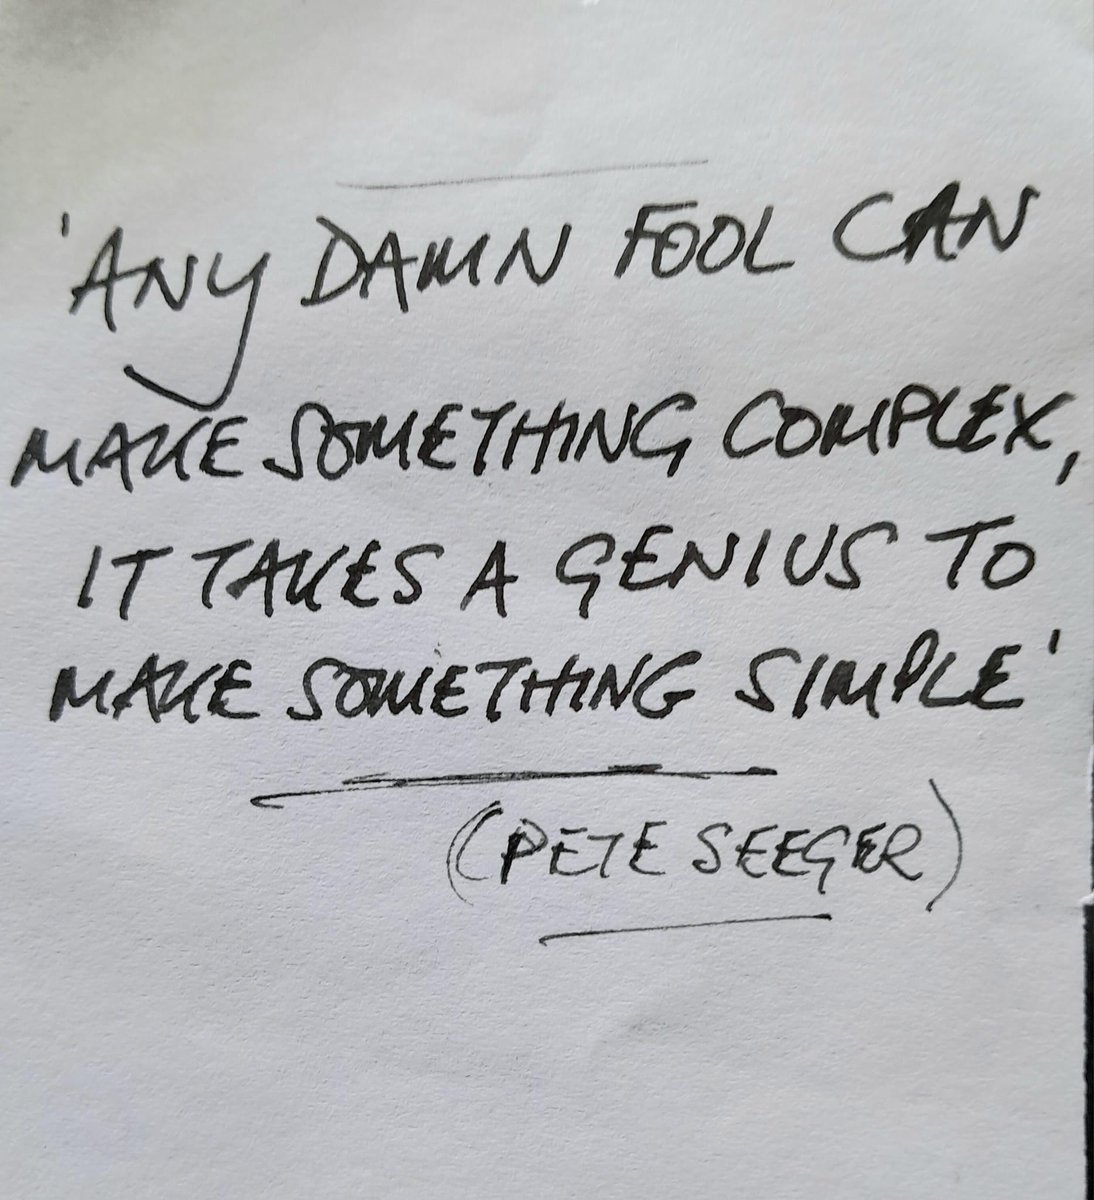 'ANY DAMN FOOL CAN
MAKE SOMETHING COMPLEX,
IT TAKES A GENIUS TO
MAKE SOMETHING SIMPLE'
(PETE SEEGER)